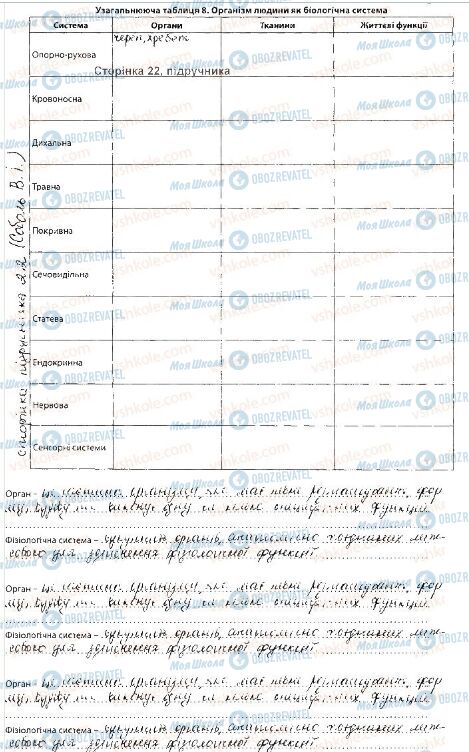 Узагальнююча таблиця 8. Організм людини як біологічна система
Система Органи Тканини Життєві функції
череп, хребет
Опорно-рухова
Сторінка 22, підручника
Кровоносна
Дихальна
Травна
Покривна
Сечовидільна
Статева
Ендокринна
Нервова
Сенсорні системи
сторінка підручника 22 (Соболь В. І.)
Орган - це частина організму, яка має певні розташування, фор
му, будову та виконує одну чи кілька специфічних функцій.
Фізіологічна система – сукупність органів, анатомічно
для здійснення фізіологічної функції
Орган - це частина організму, яка має певні розташування, фор
му, будову та виконує одну чи кілька специфічних функцій.
Фізіологічна система – сукупність органів, анатомічно
для здійснення фізіологічної функції
Орган - це частина організму, яка має певні розташування, фор
му, будову та виконує одну чи кілька специфічних функцій.
Фізіологічна система – сукупність органів, анатомічно
для здійснення фізіологічної функції
Моя Школа OBOZREVATEL
vshkole.com